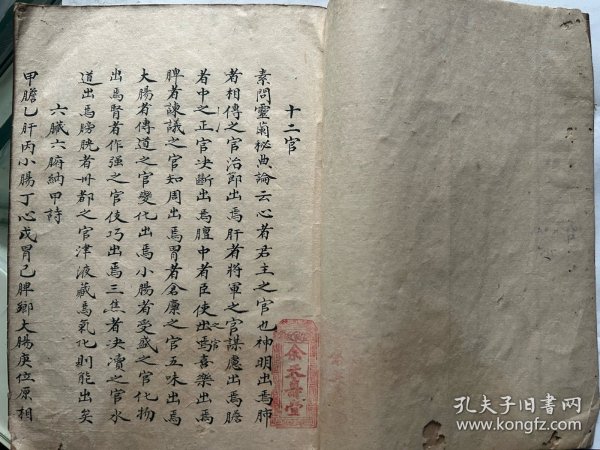 十二官
素問靈蘭秘典論云心者君主之官也神明出焉肺
者相傅之官治節出焉肝者將軍之官謀慮出焉膽
者中之正官决斷出焉膻中者臣使之官喜樂出焉
脾者諫議之官知周出焉胃者倉廩之官五味出焉
大腸者傳道之官變化出焉小腸者受盛之官化物
出焉腎者作强之官伎巧出焉三焦者决瀆之官水
道出焉膀胱者州都之官津液藏焉氣化則能出矣
六臟六腑納甲詩
甲膽乙肝丙小腸丁心戊胃己脾鄉大腸庚位原相
孔夫子旧书网
www.kongfz.com